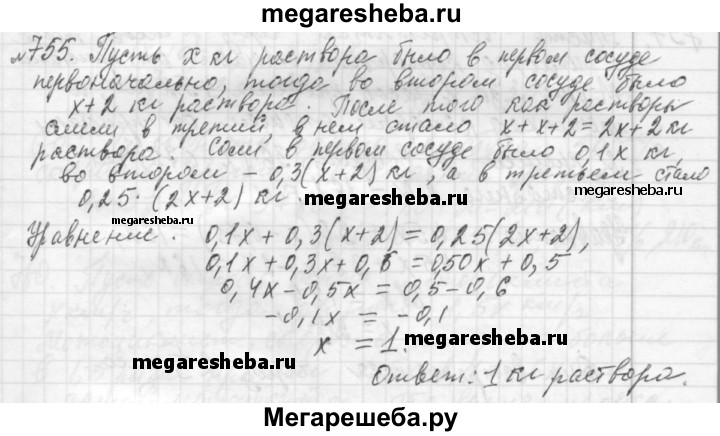 megaresheba.ru
№755. Пусть x кг раствора было в первом сосуде
первоначально, тогда во втором сосуде было
x+2 кг раствора. После того как растворы
слили в третий, в нем стало x+x+2=2x+2 кг
раствора. Соли в первом сосуде было 0,1x кг,
во втором - 0,3(x+2) кг, а в третьем стало
megaresheba.ru
0,25·(2x+2) кг.
megaresheba.ru
megaresheba.ru
Уравнение: 0,1x+0,3(x+2)=0,25(2x+2),
0,1x+0,3x+0,6=0,50x+0,5
0,4x-0,5x=0,5-0,6
-0,1x = -0,1
x = 1.
megaresheba.ru
megaresheba.ru
Ответ: 1 кг раствора.
Мегарешеба.ру